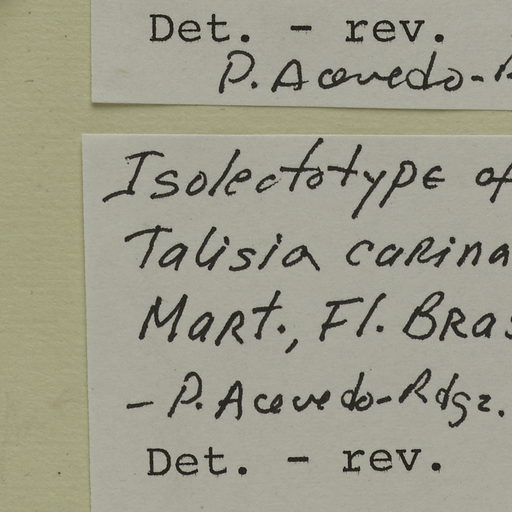 Det. - rev.
P. Acevedo-R
Isolectotype of
Talisia carina
Mart., Fl. Bras
- P. Acevedo-Rdgz.
Det. - rev.